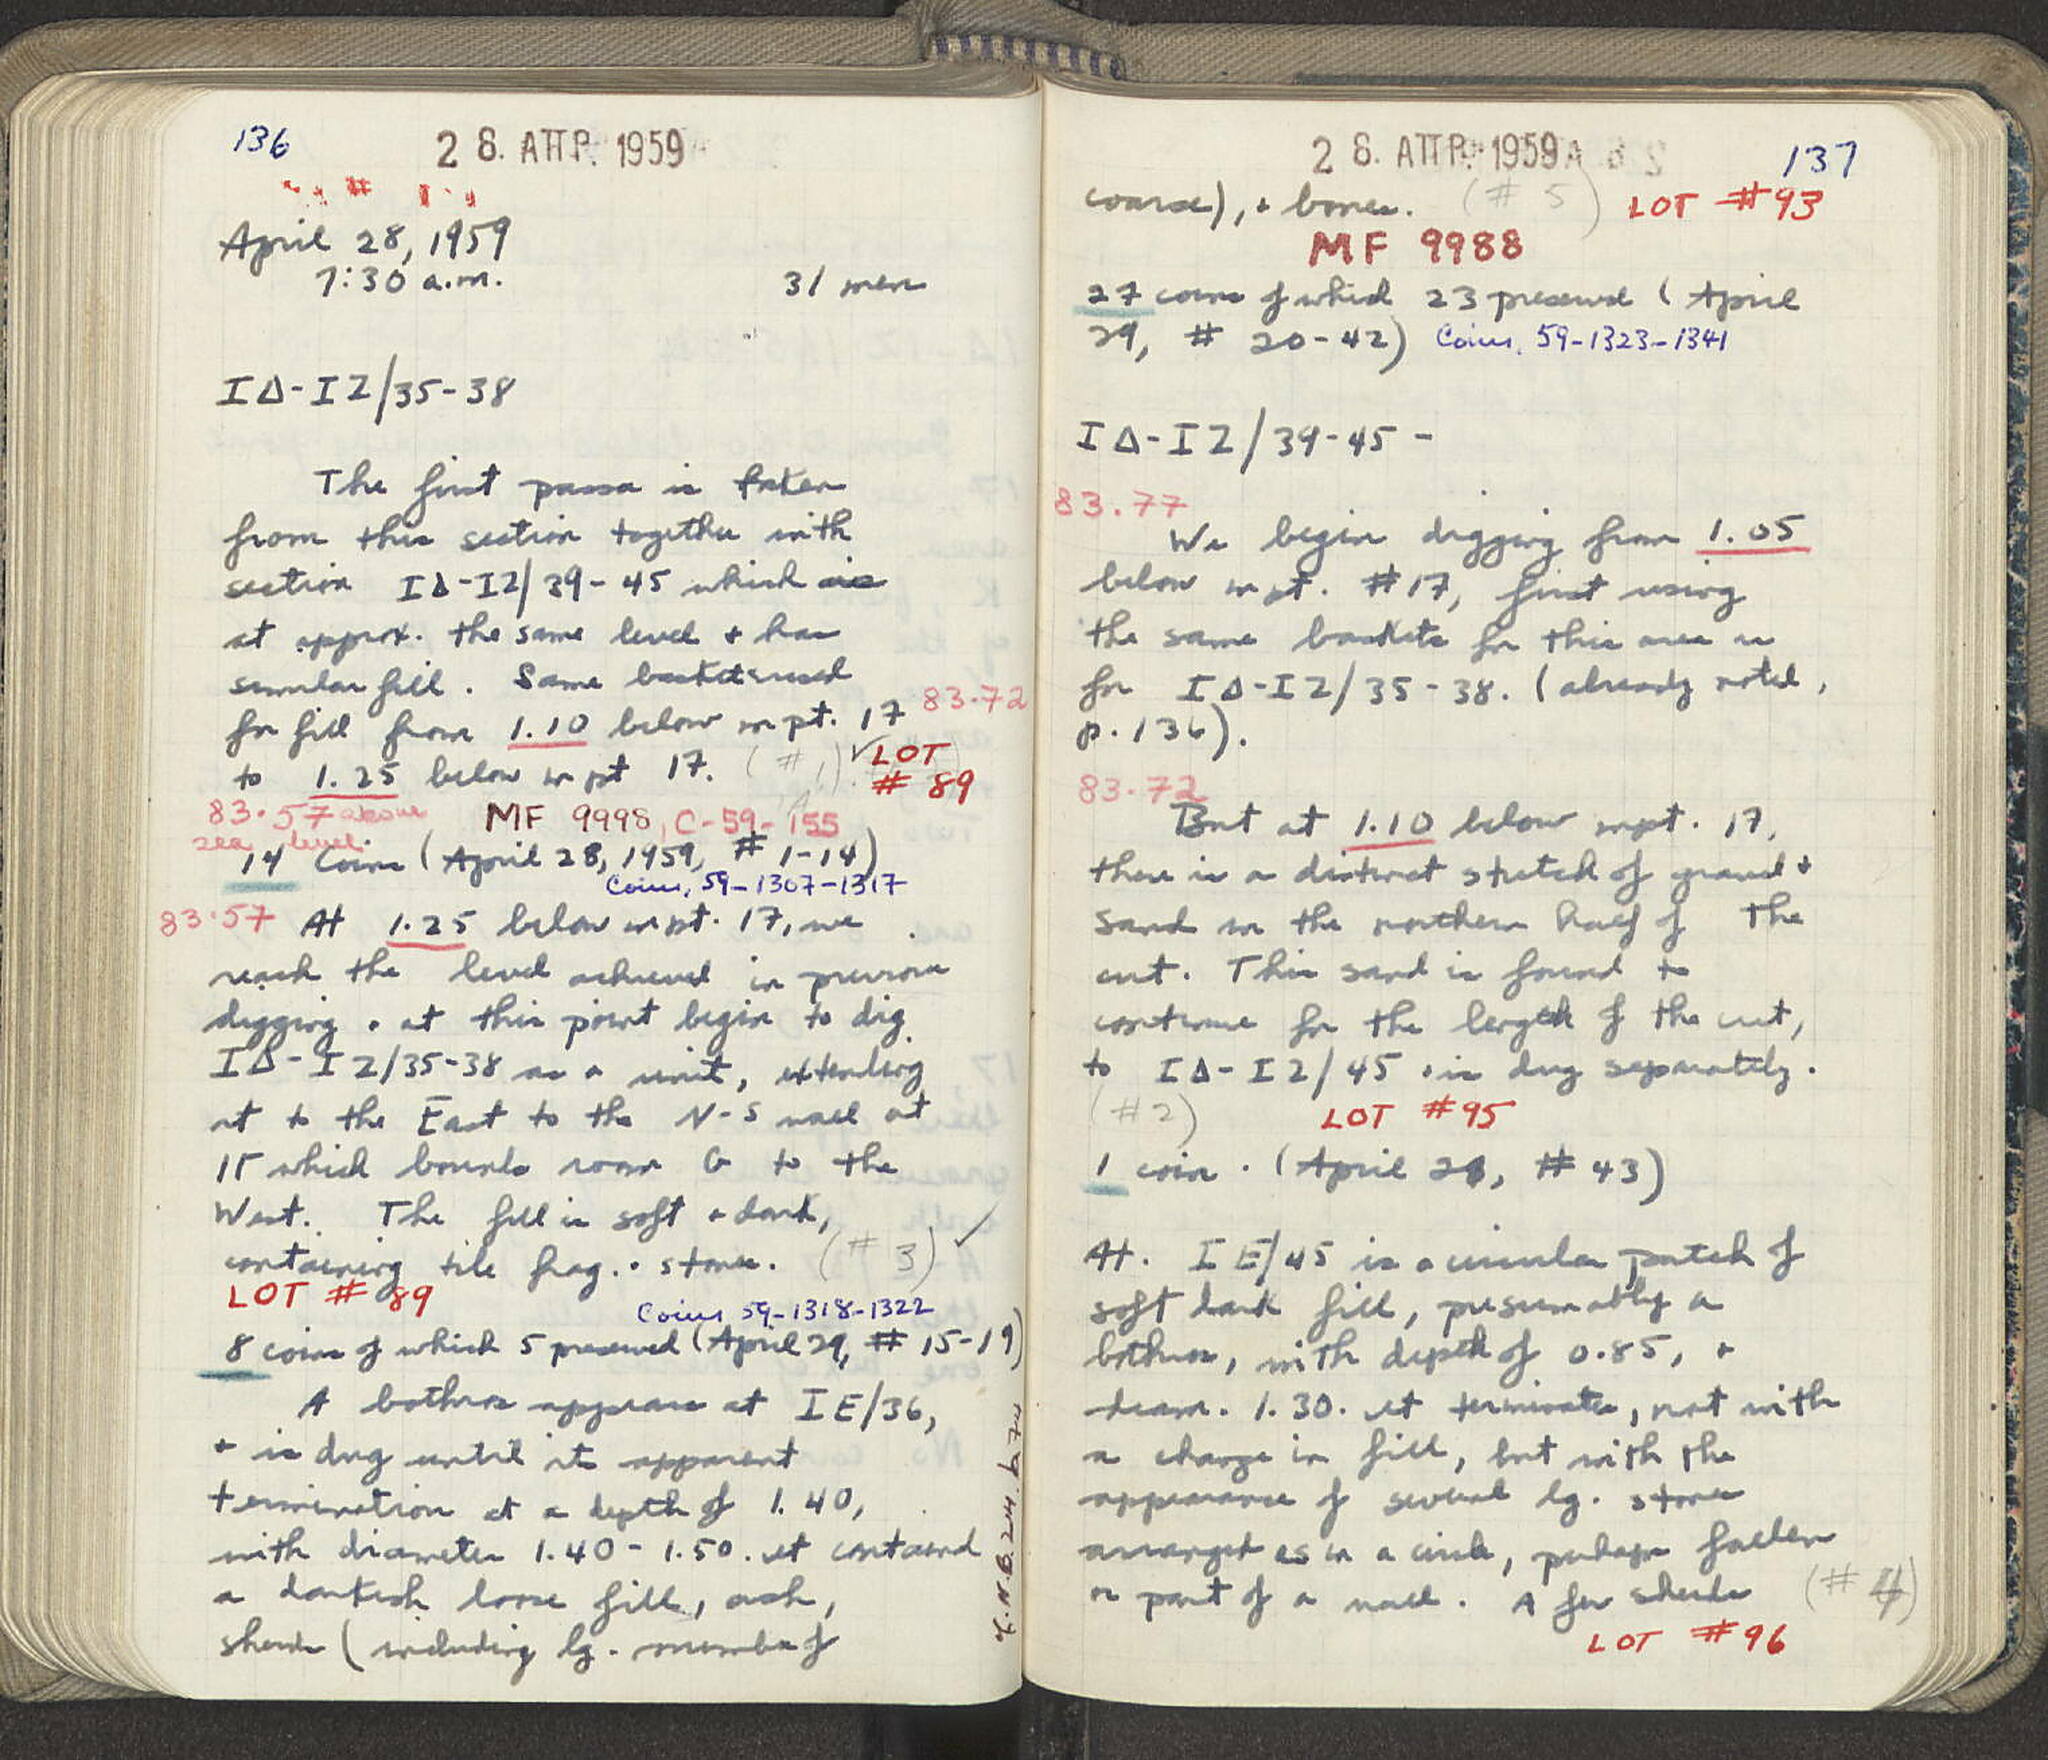 136
28. ΑΠΡ. 1959
April 28, 1959
7:30 a.m. 31 men
ΙΔ-ΙΖ/35-38
The first passa is taken
from this section together with
section ΙΔ-ΙΖ/39-45 which is
at approx. the same level + has
similar fill. Same baskets used
for fill from 1.10 below m pt. 17 83.72
to 1.25 below m pt 17. (#1) ✓ LOT
# 89
83.57 above
sea level
MF 9998, C-59-155
14 coins (April 28, 1959, # 1-14)
Coins, 59-1307-1317
83.57 At 1.25 below m pt. 17, we
reach the level achieved in previous
digging + at this point begin to dig
ΙΔ-ΙΖ/35-38 as a unit, extending
it to the East to the N-S wall at
ΙΓ which bounds room G to the
West. The fill is soft + dark,
containing tile frag. + stones. (#3) ✓
LOT # 89
Coins 59-1318-1322
8 coins of which 5 preserved (April 29, # 15-19)
A bothros appears at ΙΕ/36,
+ is dug until its apparent
termination at a depth of 1.40,
with diameter 1.40-1.50. It contained
a darkish loose fill, ash,
sherds (including lg. number of
cf. N.B. 214. p. 74
28. ΑΠΡ. 1959
137
coarse), + bones. (#5) LOT #93
MF 9988
27 coins of which 23 preserved (April
29, # 20-42) Coins, 59-1323-1341
ΙΔ-ΙΖ/39-45 -
83.77
We begin digging from 1.05
below m pt. #17, first using
the same baskets for this area as
for ΙΔ-ΙΖ/35-38. (already noted,
p. 136).
83.72
But at 1.10 below m pt. 17,
there is a distinct stretch of gravel +
sand in the northern half of the
cut. This sand is found to
continue for the length of the cut,
to ΙΔ-ΙΖ/45 + is dug separately.
(#2) LOT #95
1 coin. (April 28, # 43)
At. ΙΕ/45 is a circular patch of
soft dark fill, presumably a
bothros, with depth of 0.85, +
diam. 1.30. It terminates, not with
a change in fill, but with the
appearance of several lg. stones
arranged as in a circle, perhaps fallen
or part of a wall. A few sherds (#4)
LOT #96